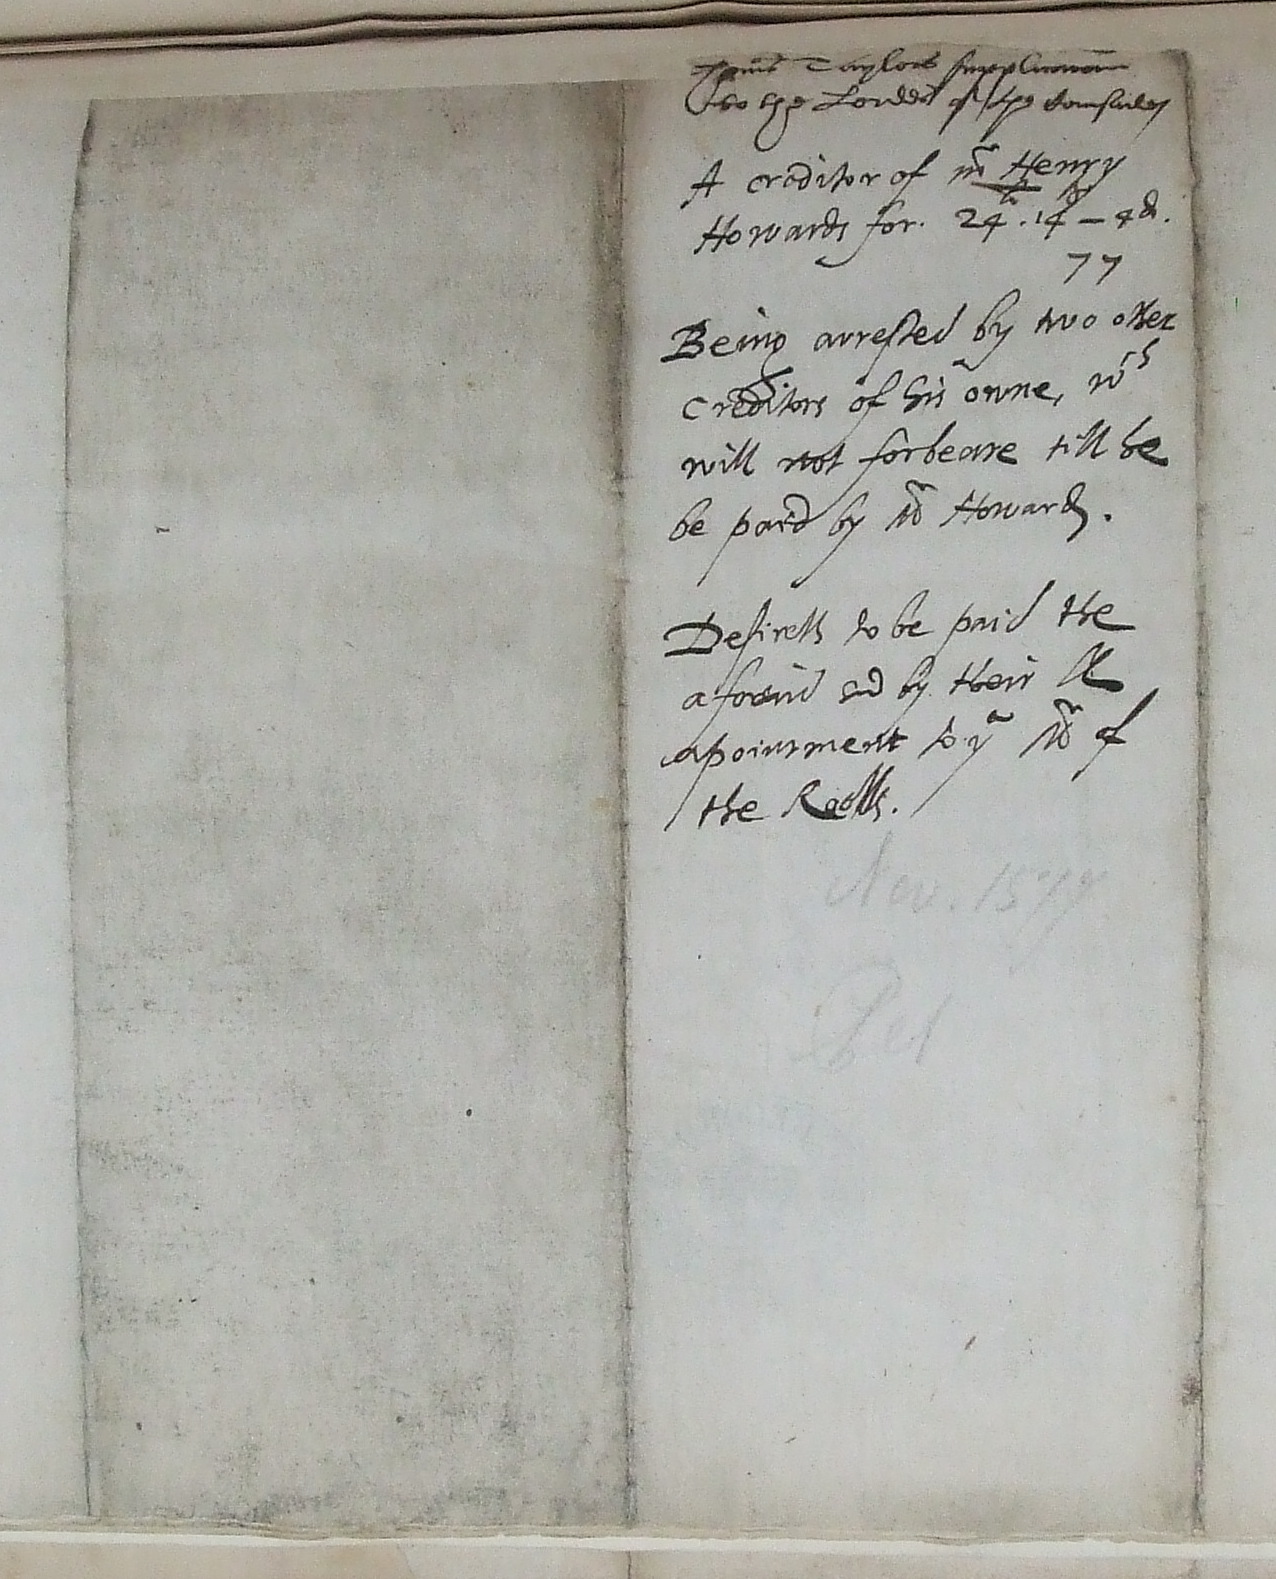 Taylors supplicacion
to the Lordes of the Counsules
A creditor of mr Henry
Howards for. 24li. 14s – 4d.
77
Being arrested by two other
creditors of his owne, wch
will not forbeare till he
be paid by Mr Howard.
Desireth to be paid the
aforsaid by their LL
apointment to ye Mr of
the Rolls.
Nov. 1577
Pet